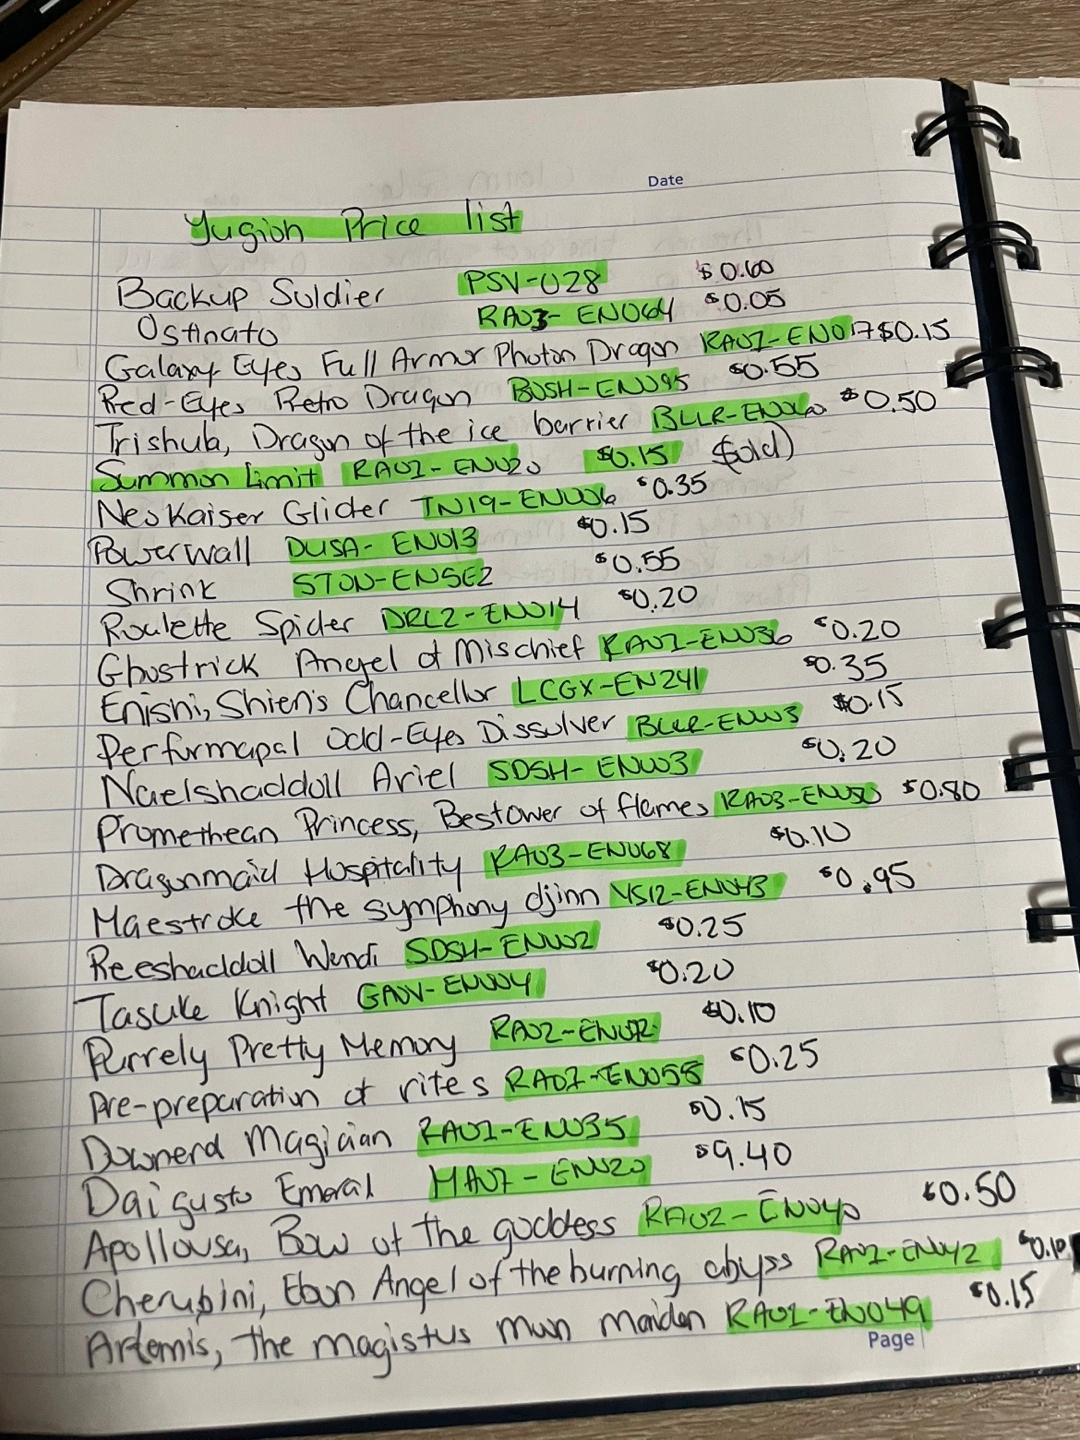 Date
Yugioh Price list
Backup Soldier PSV-028 $0.60
Ostinato RA03-EN064 $0.05
Galaxy Eyes Full Armor Photon Dragon RA01-EN017 $0.15
Red-Eyes Retro Dragon BOSH-EN095 $0.55
Trishula, Dragon of the ice barrier BLLR-EN060 $0.50
Summon Limit RA02-EN020 $0.15 (Sold)
Neo Kaiser Glider TN19-EN006 $0.35
Powerwall DUSA-EN013 $0.15
Shrink STON-ENSE2 $0.55
Roulette Spider DRL2-EN014 $0.20
Ghostrick Angel of Mischief RA01-EN036 $0.20
Enishi, Shien's Chancellor LCGX-EN241 $0.35
Performapal Odd-Eyes Dissolver BLLR-EN003 $0.15
Naelshaddoll Ariel SDSH-EN003 $0.20
Promethean Princess, Bestower of flames RA03-EN050 $0.80
Dragonmaid Hospitality RA03-EN068 $0.10
Maestroke the symphony djinn YS12-EN043 $0.95
Reeshaddoll Wendi SDSH-EN002 $0.25
Tasuke Knight GAOV-EN004 $0.20
Purrely Pretty Memory RA02-EN072 $0.10
Pre-preparation of rites RA01-EN058 $0.25
Downerd Magician RA01-EN035 $0.15
Daigusto Emeral HA07-EN020 $9.40
Apollousa, Bow of the goddess RA02-EN040 $0.50
Cherubini, Ebon Angel of the burning abyss RA01-EN042 $0.10
Artemis, the magistus mun maiden RA01-EN049 $0.15
Page